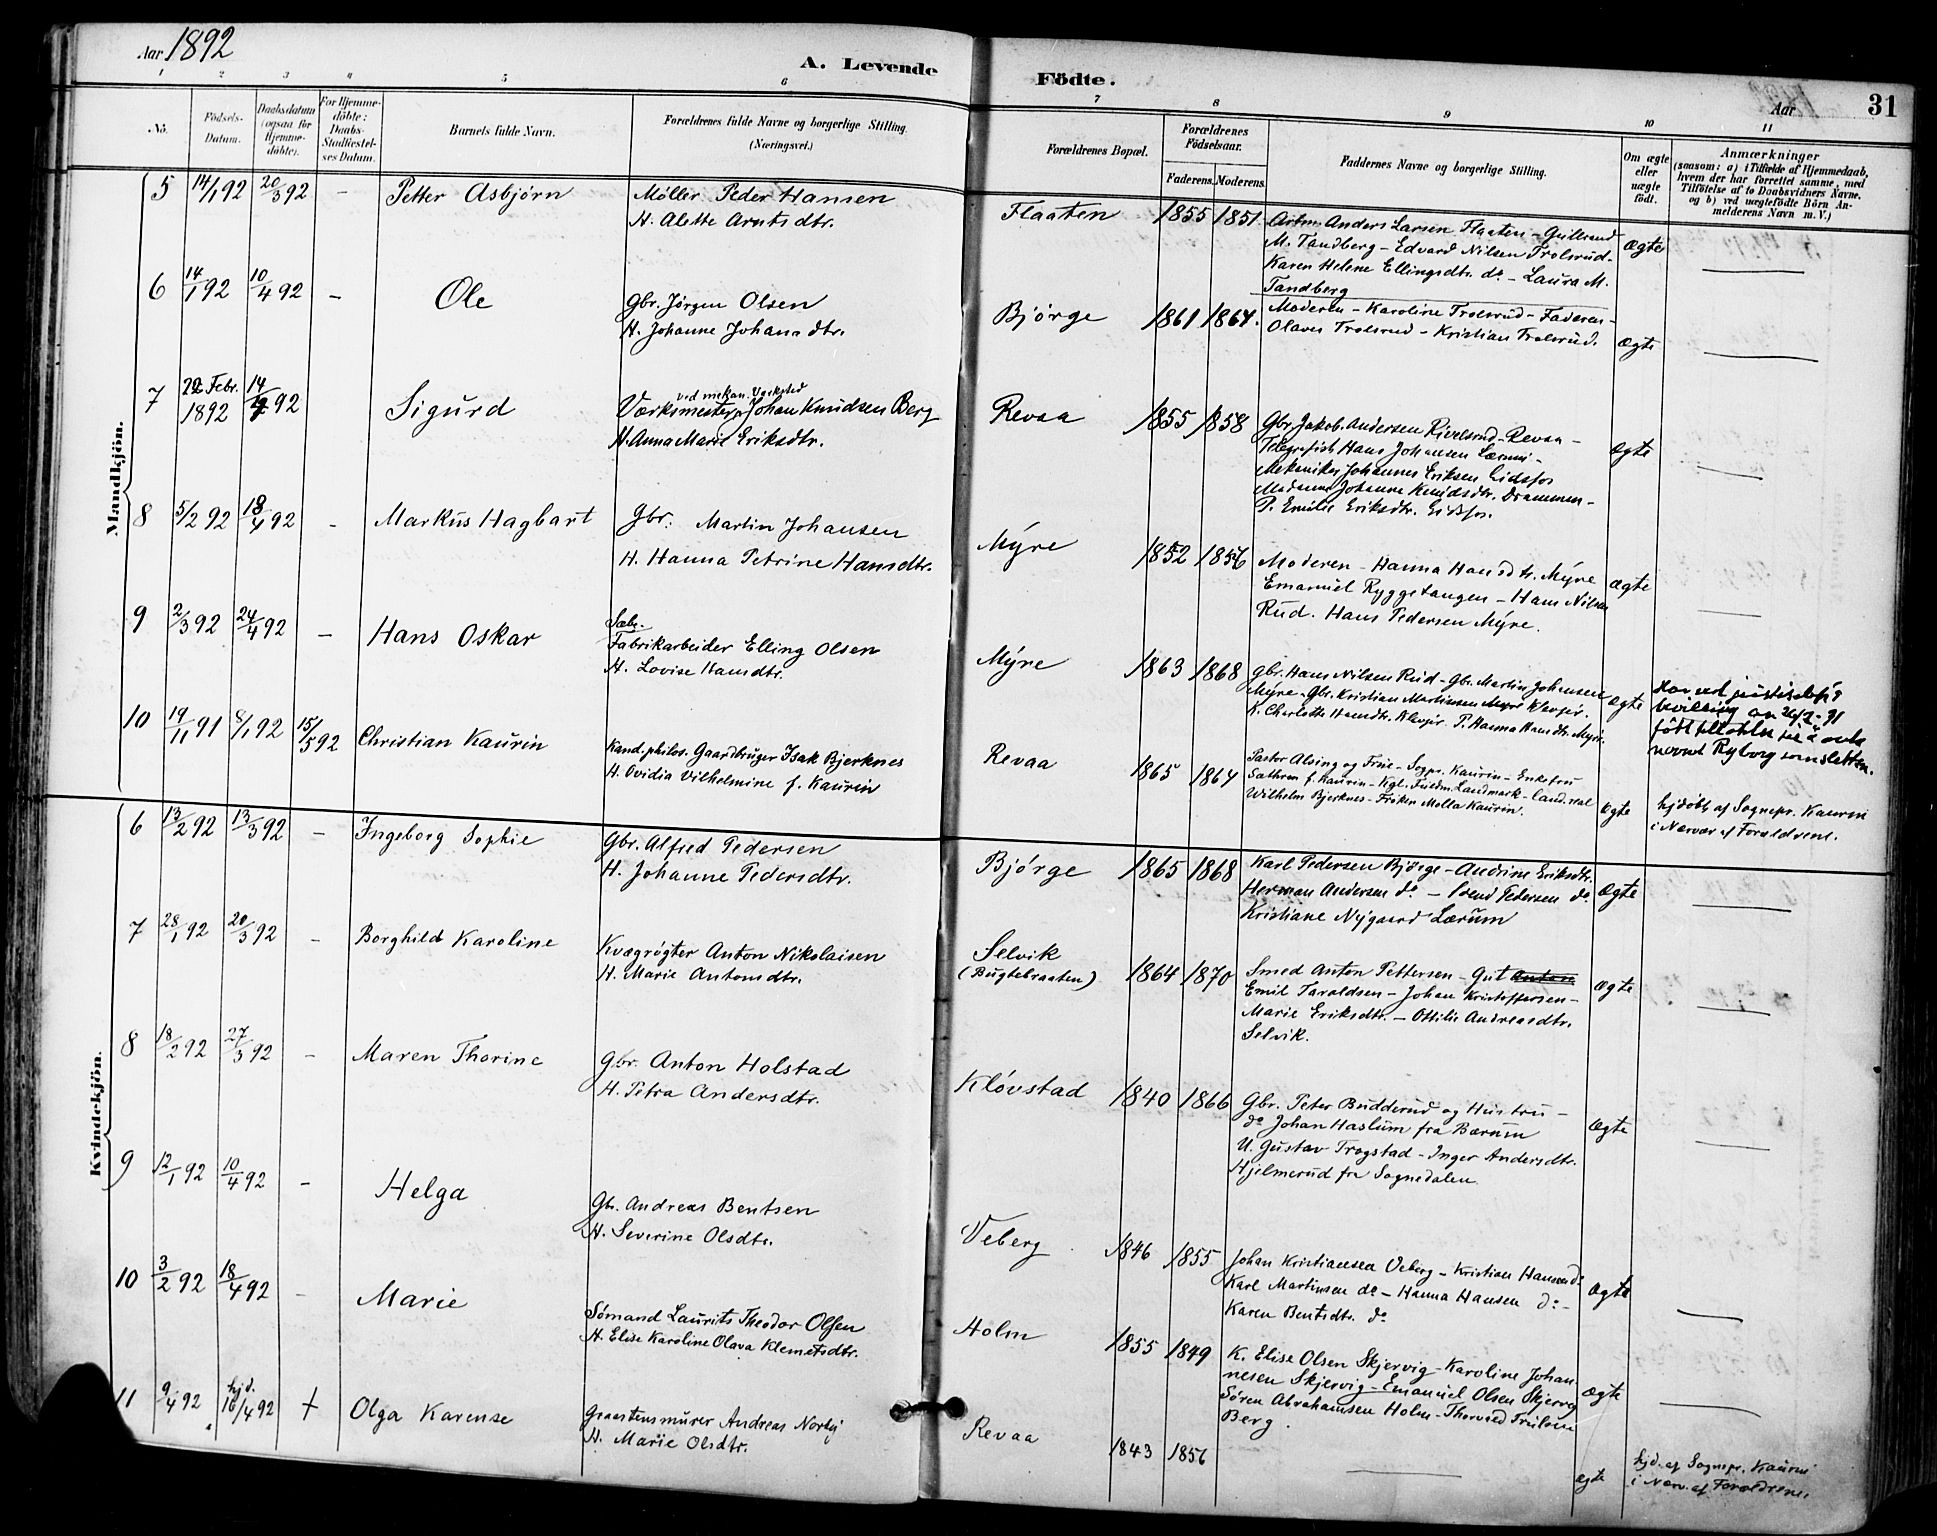 Aar 1892
A. Levende
Födte.
Aar
31
1 2 3 4 5 6 7 8 9 10 11
No.
Födsels-
Datum.
Daabsdatum
(ogsaa for
Hjemme-
döbte).
For Hjemme-
döbte:
Daabs-
Stadfæstel-
ses Datum.
Barnets fulde Navn.
Forældrenes fulde Navne og borgerlige Stilling.
(Næringsvei.)
Forældrenes Bopæl.
Forældrenes
Födselsaar.
Faderens. Moderens.
Faddernes Navne og borgerlige Stilling.
Om ægte
eller
uægte
født.
Anmærkninger
(saasom: a) i Tilfælde af Hjemmedaab,
hvem der har forrettet samme, med
Tilföielse af to Daabsvidners Navne,
og b) ved uægtefödte Börn An-
melderens Navn m. V.)
Mandkjön.
5 14/1 92 20/3 92 - Petter Asbjörn
Möller Peder Hansen
H. Alette Arntsdtr.
Flaaten 1855 1851
Arbm. Anders Larsen Flaaten - Gullbrand
M. Tandberg - Edvard Nilsen Trolsrud -
Karen Helene Ellingsdtr. do - Laura M.
Tandberg
Ægte
6 14/1 92 10/4 92 - Ole
Gbr. Jörgen Olsen
H. Johanne Johansdtr.
Bjørge 1861 1864.
Moderen - Karoline Trolsrud - Faderen -
Olaves Trolsrud - Kristian Trolsrud.
Ægte
7 22 Febr. 1892 14/4 92 Sigurd
ved mekan. Værksted
Værksmester Johan Knudsen Berg
H. Anna Marie Eriksdtr.
Revaa 1855 1858
Gbr. Jakob Andersen Rivelsrud - Revaa -
Telegrafist Hans Johansen Lærum -
Mekaniker Johannes Eriksen Eidsfos
Madame Johanne Knudsdtr. Drammen -
P. Emilie Eriksdtr. Eidsfos.
Ægte
8 5/2 92 18/4 92 - Markus Hagbart
Gbr. Martin Johansen
H. Hanna Petrine Hansdtr.
Myre 1852 1856
Moderen - Hanna Hansdtr. Myre
Emanuel Ryggetangen - Hans Nilsen
Rud. Hans Pedersen Myre.
Ægte
9 2/3 92 24/4 92 - Hans Oskar
Sæbr.
Fabrikarbeider Elling Olsen
H. Lovise Hansdtr.
Myre 1863 1868
Gbr. Hans Nilsen Rud - Gbr. Martin Johansen
Myre - Gbr. Kristian Martinsen Myre Klevjer.
K. Charlotte Hansdtr. Klevjer. P. Hanna Hansdtr. Myre.
Ægte
Har ved
bevilling
födt tilladelse
Ryborg som
10 19/11 91 8/1 92 15/5 92 Christian Kaurin
Kand. philos. Gaardbruger Isak Bjerknes
H. Ovidia Vilhelmine f. Kaurin
Revaa 1865 1864
Pastor Alving og Frue - Sogpr. Kaurin - Enkefru
Sæthren f. Kaurin - Kgl. Fuldm. Landmark - Cand. real
Wilhelm Bjerknes - Fröken Molla Kaurin.
Ægte
hjdöbt af Sognepr. Kaurin
i Nærvær af Forældrene.
Kvindekjön.
6 13/2 92 13/3 92 - Ingeborg Sophie
Gbr. Alfred Pedersen
H. Johanne Pedersdtr.
Bjørge 1865 1868
Karl Pedersen Bjørge - Andrine Eriksdtr.
Herman Andersen do - Svend Pedersen do.
Kristiane Nygaard Lærum
Ægte
7 28/1 92 20/3 92 - Borghild Karoline
Kvægrögter Anton Nikolaisen
H. Marie Antonsdtr.
Selvik
(Bugtebraaten) 1864 1870
Smed Anton Pettersen - Gut Anton
Emil Taraldsen - Johan Kristoffersen -
Marie Eriksdtr. - Ottilie Andreasdtr.
Selvik.
Ægte
8 18/2 92 27/3 92 - Maren Thorine
Gbr. Anton Holstad
H. Petra Andersdtr.
Kløvstad 1840 1866
Gbr. Peter Budderud og Hustru -
do Johan Haslum fra Bærum
U. Gustav Trogstad - Inger Andersdtr.
Hjelmerud fra Sognedalen
Ægte
9 12/1 92 10/4 92 - Helga
Gbr. Andreas Bentsen
H. Severine Olsdtr.
Veberg 1846 1855
Johan Kristiansen Veberg - Kristian Hansen do
Karl Martinsen do - Hanna Hansen do -
Karen Bentsdtr. do
Ægte
10 3/2 92 18/4 92 - Marie
Sömand Laurits Theodor Olsen
H. Elise Karoline Olava Klemetsdtr.
Holm 1855 1849
K. Elise Olsen Skjervig - Karoline Johan
nesen Skjervig - Emanuel Olsen Skjervig
Sören Abrahamsen Holm - Thorvald Trulsen
Berg.
Ægte
11 9/4 92 hjd. 16/4 92 + Olga Karense
Graastensmurer Andreas Norby
H. Marie Olsdtr.
Revaa 1843 1856
Ægte
hjd. af Sognepr. Kaurin
i Nærv. af Forældrene.